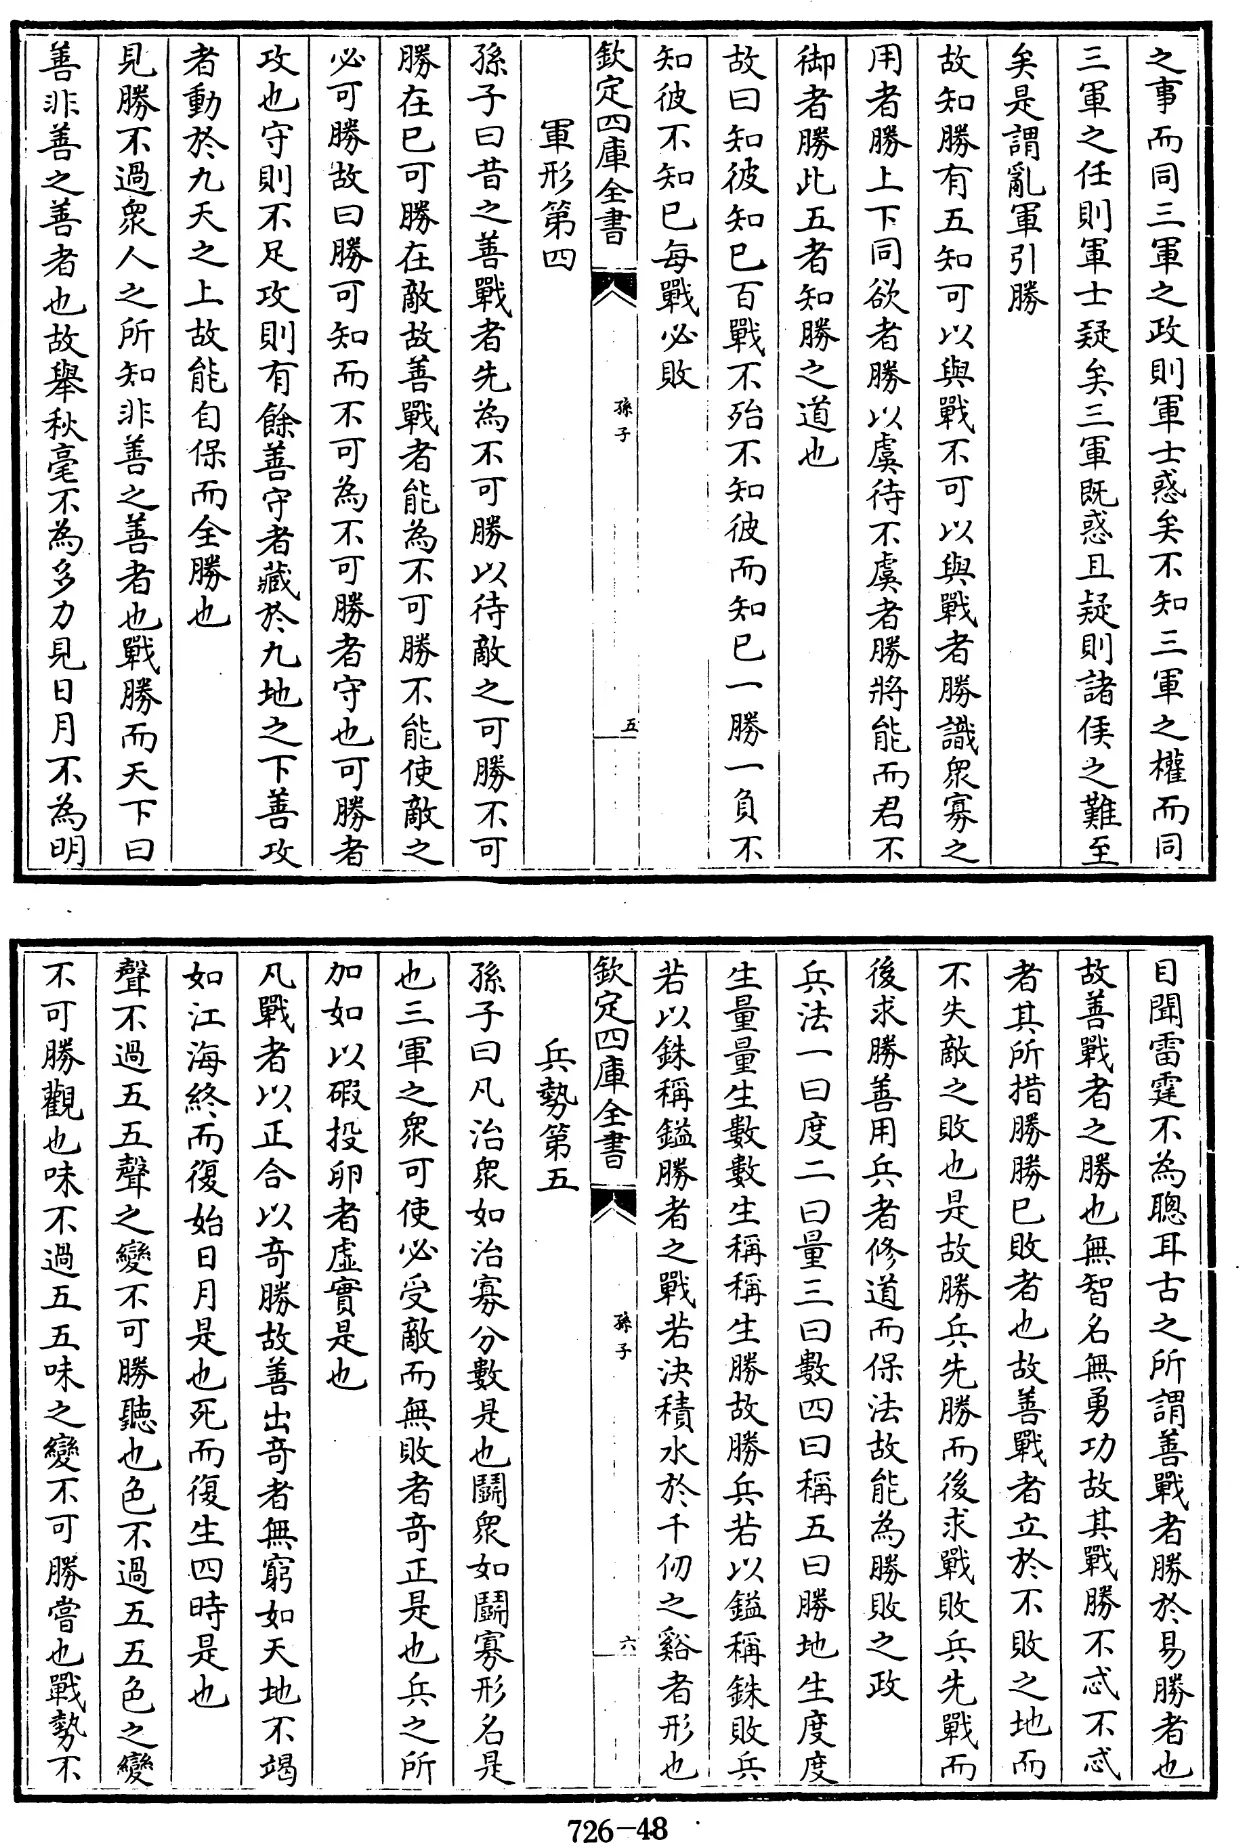 之事而同三軍之政則軍士惑矣不知三軍之權而同
三軍之任則軍士疑矣三軍既惑且疑則諸侯之難至
矣是謂亂軍引勝
故知勝有五知可以與戰不可以與戰者勝識衆寡之
用者勝上下同欲者勝以虞待不虞者勝將能而君不
御者勝此五者知勝之道也
故曰知彼知已百戰不殆不知彼而知已一勝一負不
知彼不知已每戰必敗
欽定四庫全書
孫子
五
軍形第四
孫子曰昔之善戰者先為不可勝以待敵之可勝不可
勝在已可勝在敵故善戰者能為不可勝不能使敵之
必可勝故曰勝可知而不可為不可勝者守也可勝者
攻也守則不足攻則有餘善守者藏於九地之下善攻
者動於九天之上故能自保而全勝也
見勝不過衆人之所知非善之善者也戰勝而天下曰
善非善之善者也故舉秋毫不為多力見日月不為明
目聞雷霆不為聰耳古之所謂善戰者勝於易勝者也
故善戰者之勝也無智名無勇功故其戰勝不忒不忒
者其所措勝勝已敗者也故善戰者立於不敗之地而
不失敵之敗也是故勝兵先勝而後求戰敗兵先戰而
後求勝善用兵者修道而保法故能為勝敗之政
兵法一曰度二曰量三曰數四曰稱五曰勝地生度度
生量量生數數生稱稱生勝故勝兵若以鎰稱銖敗兵
若以銖稱鎰勝者之戰若決積水於千仞之谿者形也
欽定四庫全書
孫子
六
兵勢第五
孫子曰凡治衆如治寡分數是也鬭衆如鬭寡形名是
也三軍之衆可使必受敵而無敗者奇正是也兵之所
加如以碬投卵者虛實是也
凡戰者以正合以奇勝故善出奇者無窮如天地不竭
如江海終而復始日月是也死而復生四時是也
聲不過五五聲之變不可勝聽也色不過五五色之變
不可勝觀也味不過五五味之變不可勝嘗也戰勢不
726-48